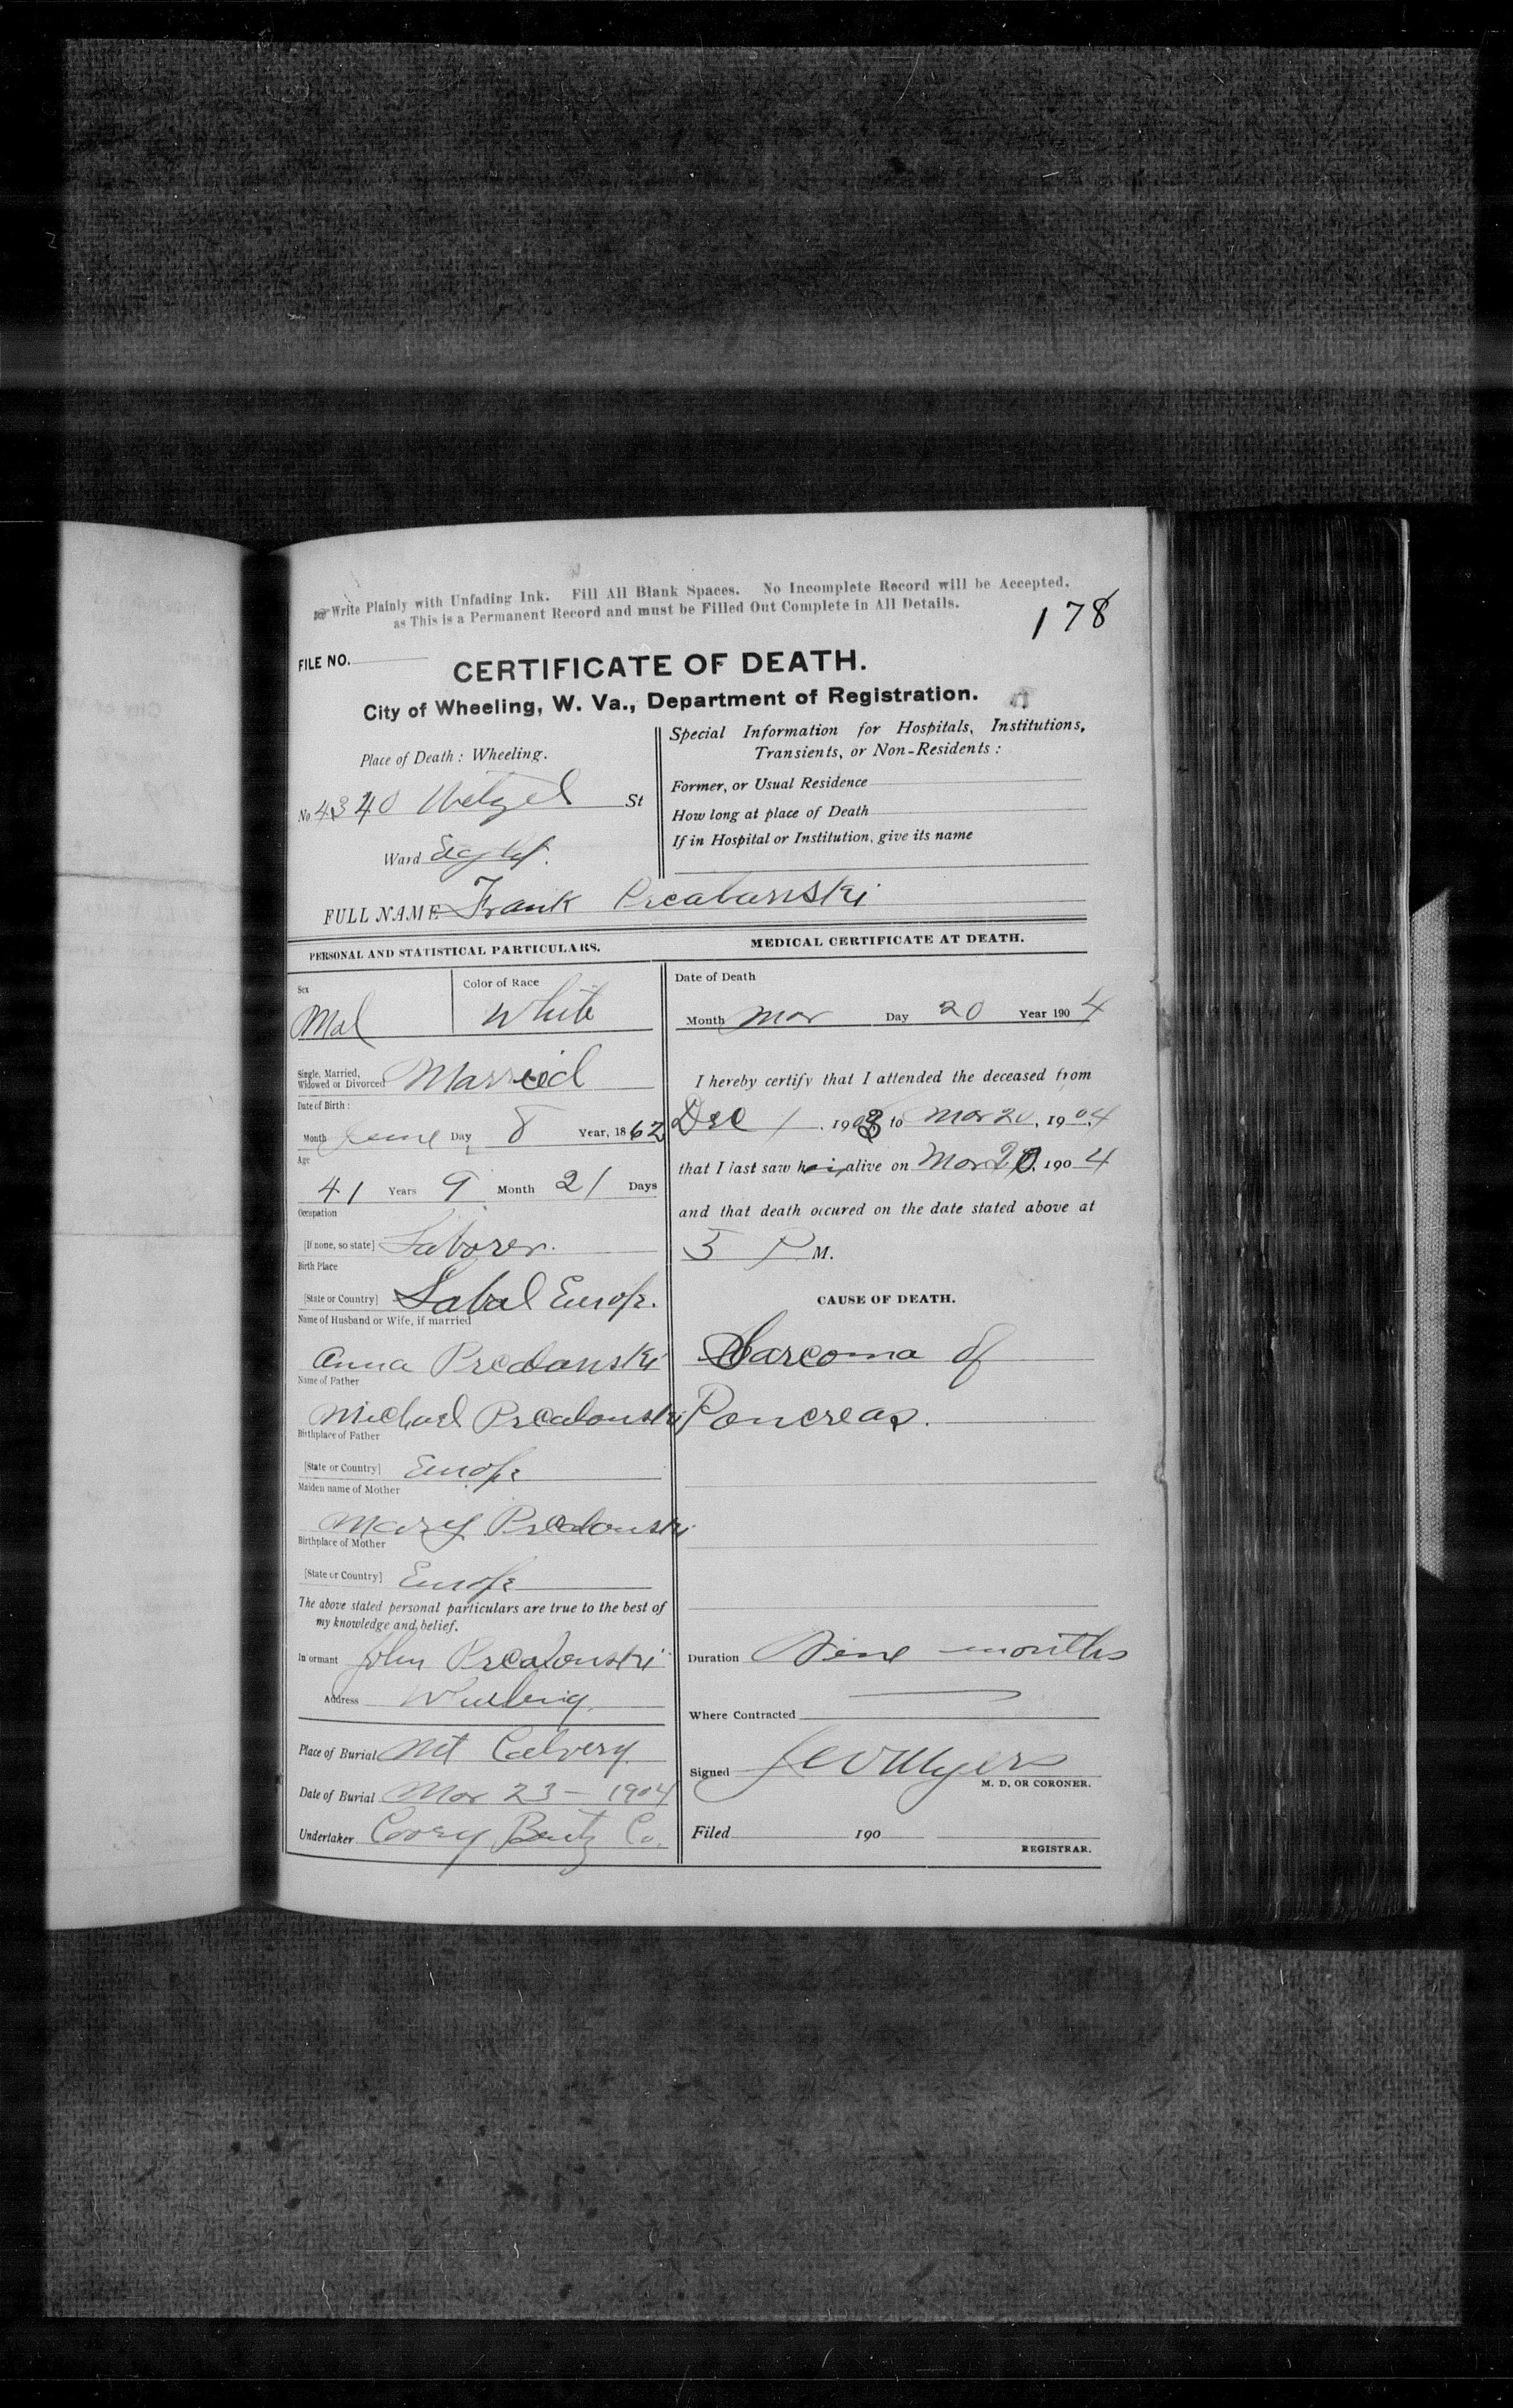 Write Plainly with Unfading Ink. Fill All Blank Spaces. No Incomplete Record will be Accepted,
as This is a Permanent Record and must be Filled Out Complete in All Details.
178
FILE NO.
CERTIFICATE OF DEATH.
City of Wheeling, W. Va., Department of Registration.
Place of Death: Wheeling.
No 4340 Wetzel St
Ward
Special Information for Hospitals, Institutions,
Transients, or Non-Residents:
Former, or Usual Residence
How long at place of Death
If in Hospital or Institution, give its name
FULL NAME Frank
PERSONAL AND STATISTICAL PARTICULARS.
Sex
Mal
Color of Race
White
Single, Married,
Widowed or Divorced Married
Date of Birth:
Month June Day 8 Year, 1862
Age
41 Years 9 Month 21 Days
Occupation
[If none, so state] Laborer.
Birth Place
[State or Country] Europe.
Name of Husband or Wife, if married
Anna
Name of Father
Michael
Birthplace of Father
[State or Country] Europe
Maiden name of Mother
Mary
Birthplace of Mother
[State or Country] Europe
The above stated personal particulars are true to the best of
my knowledge and belief.
Informant John
Address Wheeling
Place of Burial Mt Calvery
Date of Burial Mar 23 - 1904
Undertaker Cooey Bentz Co.
MEDICAL CERTIFICATE AT DEATH.
Date of Death
Month Mar Day 20 Year 1904
I hereby certify that I attended the deceased from
Dec 1, 1903 to Mar 20, 1904
that I last saw him alive on Mar 20, 1904
and that death occured on the date stated above at
5 P M.
CAUSE OF DEATH.
Sarcoma of
Pancreas.
Duration Nine months
Where Contracted
Signed Myers
M. D. OR CORONER.
Filed 190
REGISTRAR.